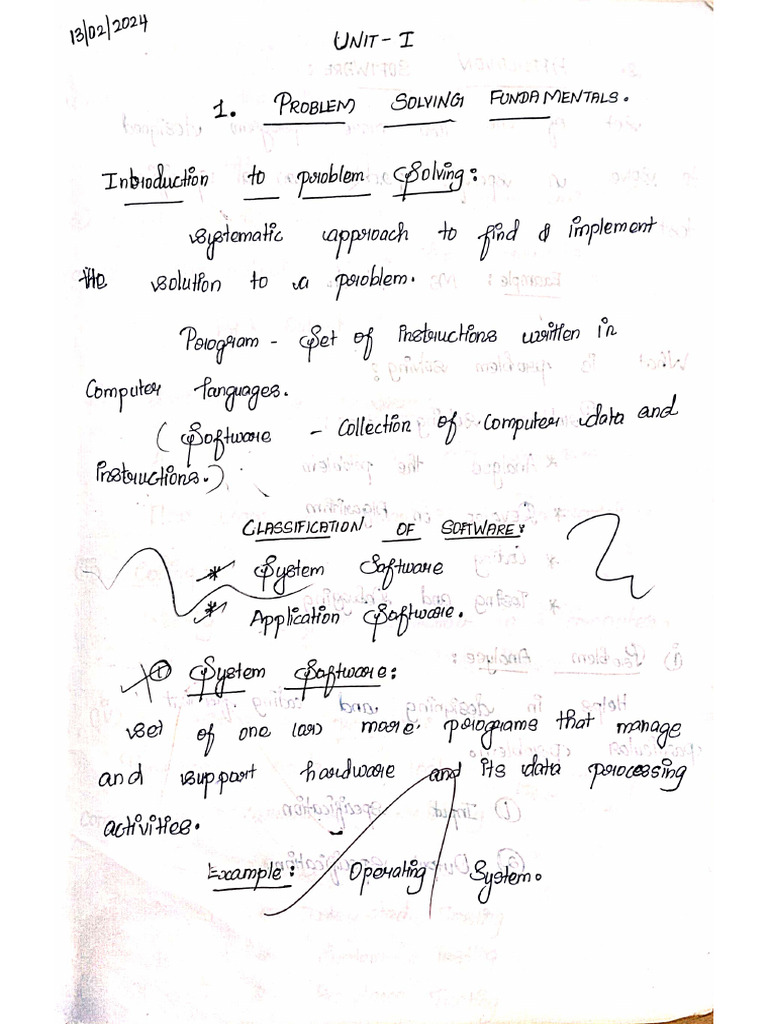 13/02/2024
UNIT-I
1. PROBLEM SOLVING FUNDAMENTALS.
Introduction to problem Solving:
systematic approach to find & implement
the solution to a problem.
Program - Set of instructions written in
Computer languages.
(Software - Collection of Computer data and
instructions.)
CLASSIFICATION OF SOFTWARE:
* System Software
* Application Software.
* ① System Software:
set of one (or) more programs that manage
and support hardware and its data processing
activities.
Example: Operating System.